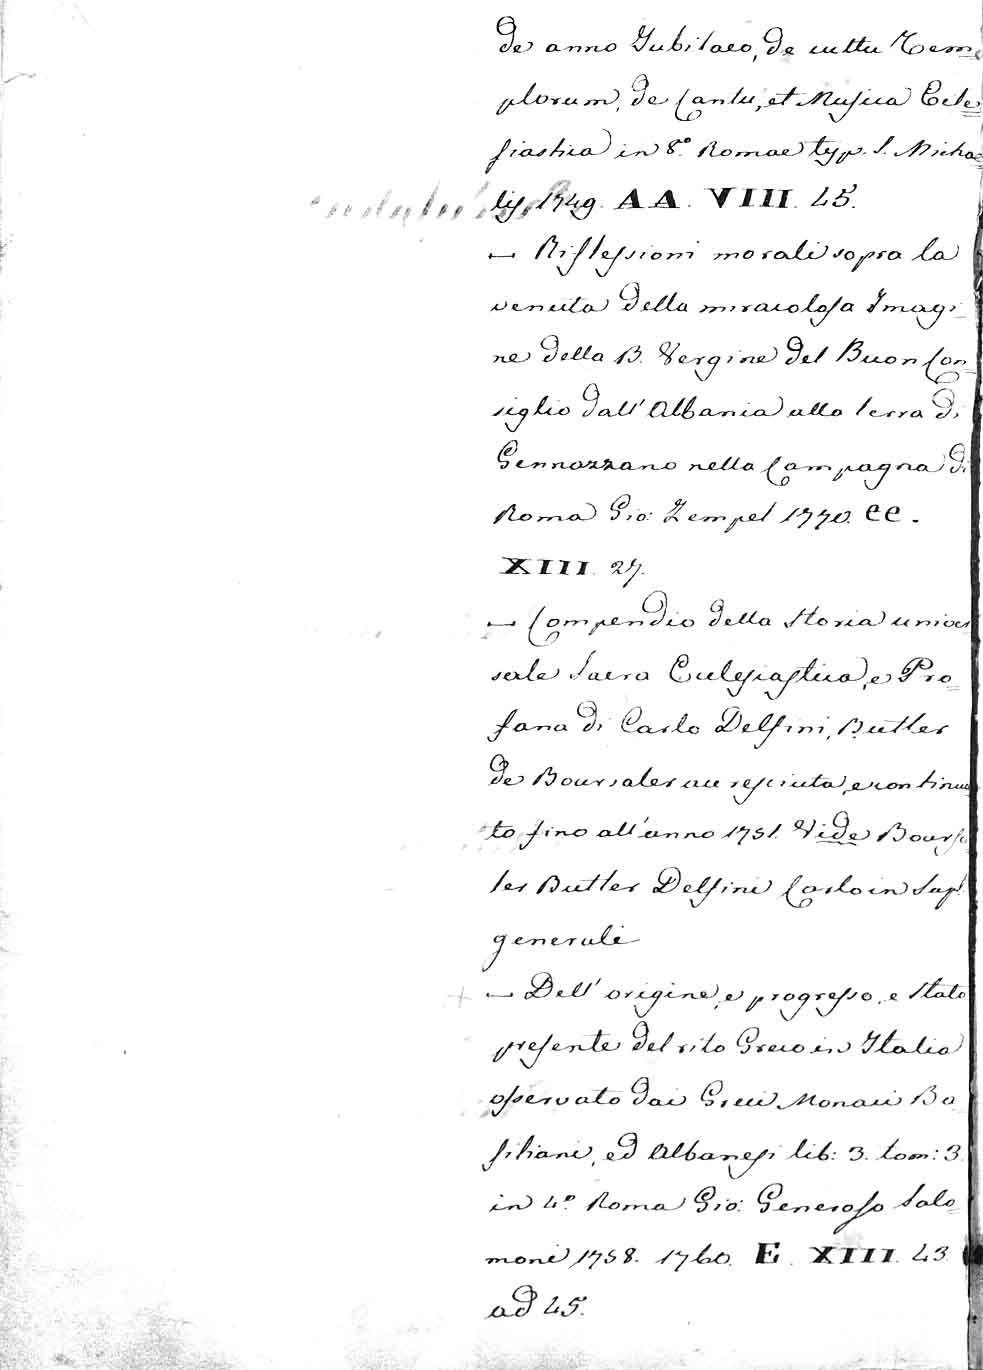 de anno Jubilaeo, de cultu Tem=
plorum, de Cantu, et Musica Eccle=
siastica in 8.° Romae typ. S. Micha=
lis 1749. AA. VIII. 45.
— Riflessioni morali sopra la
venuta della miracolosa Imagi=
ne della B. Vergine del Buon Con=
siglio dall' Albania alla terra di
Gennazzano nella Campagna di
Roma Gio: Zempel 1770. CC.
XIII. 27.
— Compendio della Storia univer
sale Sacra Ecclesiastica, e Pro=
fana di Carlo Delfini, Butler
de Boursaler accresciuta, e continua
to fino all'anno 1751. Vide Boursa
ler Butler Delfini Carlo in Sup.
generale
— Dell' origine, e progresso, e Stato
presente del rito Greco in Italia
osservato dai Greci Monaci Ba
siliani, ed Albanesi lib: 3. tom: 3.
in 4.° Roma Gio: Generoso Salo=
moni 1758. 1760. E. XIII. 43.
ad 45.